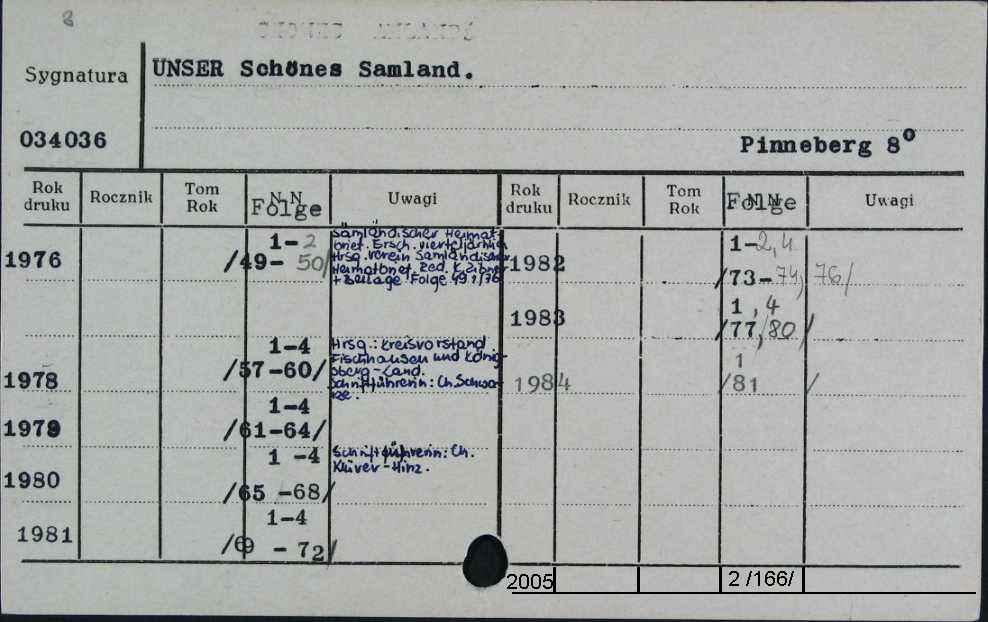 8
Sygnatura
UNSER Schönes Samland.
034036
Pinneberg 8°
Rok druku Rocznik Tom Rok Folge Uwagi Rok druku Rocznik Tom Rok Folge Uwagi
1976 1-2 /49-50/
Samländischer Heimat-
Ersch. vierteljährlich
Hrsg. verein Samländischer
Red. K.
+ Beilage Folge 49 1/76
1978 1-4 /57-60/
Hrsg.: Kreisvorstand
Fischhausen und König-
sberg-Land.
Schriftführerin: Ch. Schwar-
ze.
1979 1-4 /61-64/
1980 1-4 /65-68/
Schriftführerin: Ch.
Klüver-Hinz.
1981 1-4 /69-72/
1982 1-2,4 /73-74, 76/
1983 1,4 /77,80/
1984 1 /81 /
2005 2 /166/